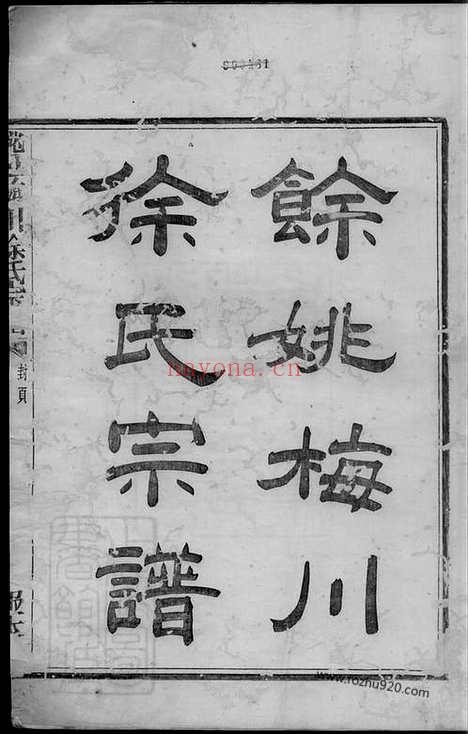 餘姚梅川
徐氏宗譜
封頁
nayona.cn
www.fozhu920.com